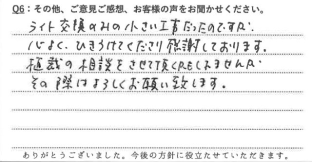 Q6：その他、ご意見ご感想、お客様の声をお聞かせください。
ライト交換のみの小さい工事だったのですが
心よく、ひきうけてくださり感謝しております。
植栽の相談をさせて頂くかもしれませんが
その際はよろしくお願い致します。
ありがとうございました。今後の方針に役立たせていただきます。